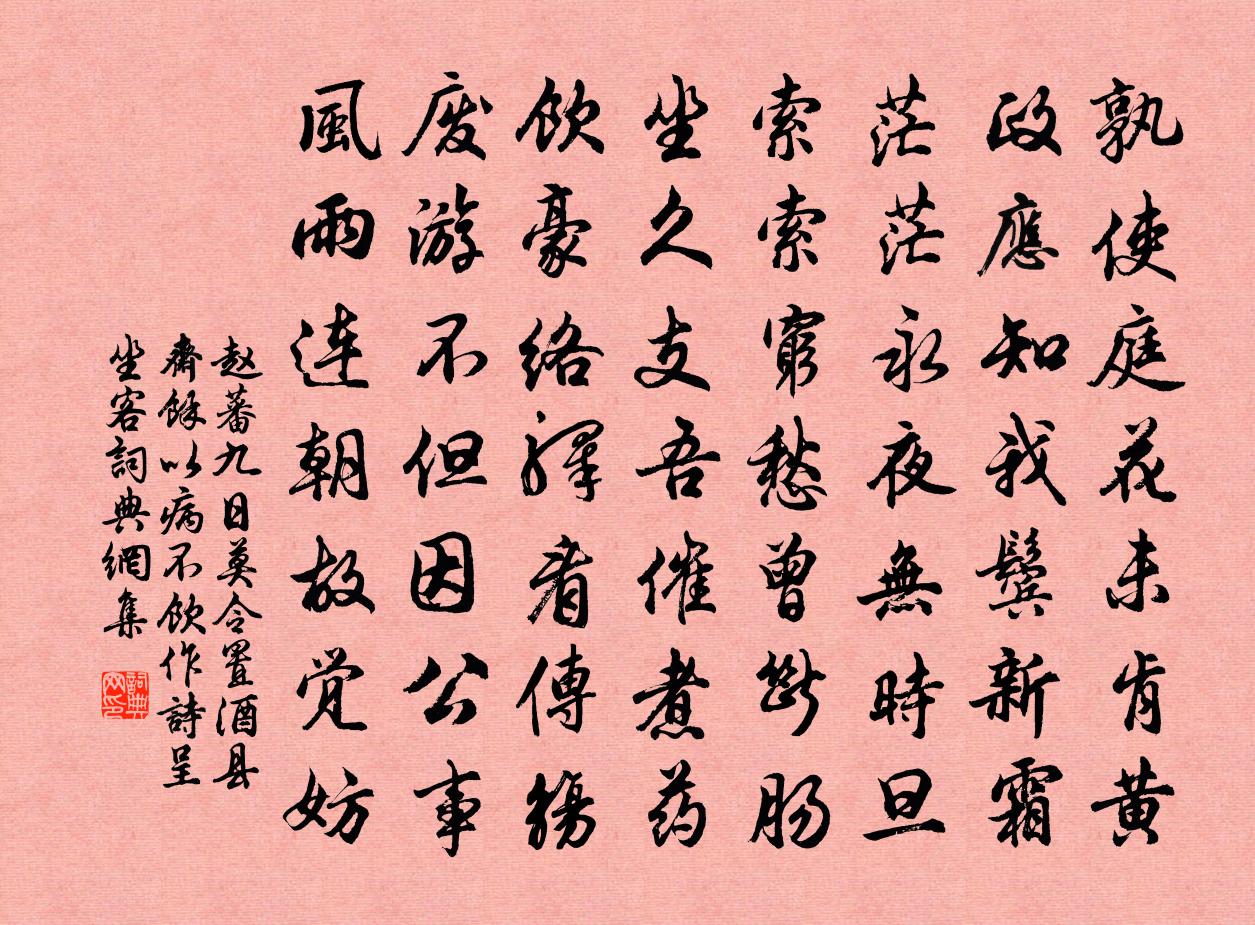 孰使庭花未肯黄
政應知我鬢新霜
茫茫永夜無時旦
索索窮愁曾斷肠
坐久支吾催煮药
飲豪絡繹看傳觴
废游不但因公事
風雨连朝故觉妨
赵蕃九日莫令置酒县
齋餘以病不飲作詩呈
坐客詞典網集
詞典网印